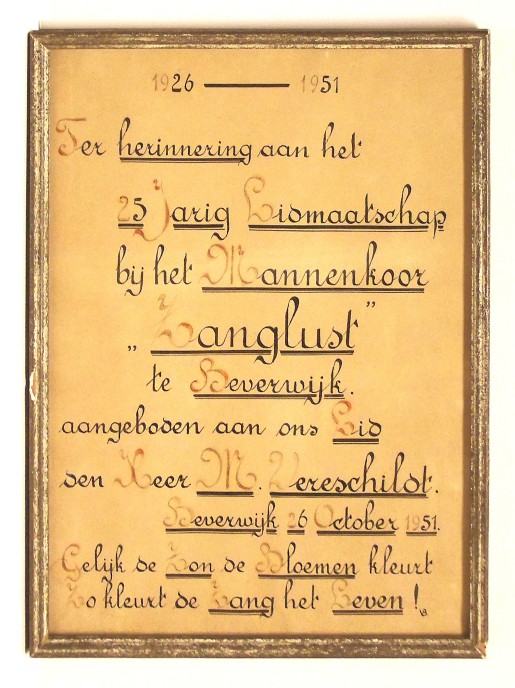 1926 — 1951
Ter herinnering aan het
25 Jarig Lidmaatschap
bij het Mannenkoor
„ Zanglust ”
te Beverwijk.
aangeboden aan ons Lid
den Heer M. Vereschildt.
Beverwijk 26 October 1951.
Gelijk de Zon de Bloemen kleurt
Zo kleurt de Zang het Leven !